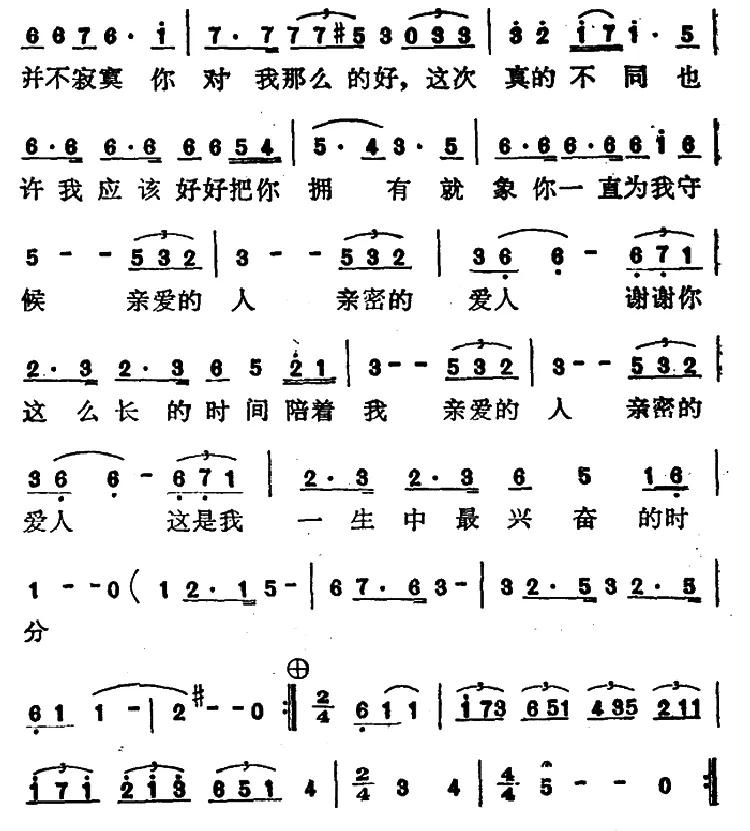 6 6 7 6 · i | 7 · 7 7 7 #5 3 0 3 3 | 3 2 i 7 i · 5 |
并不寂寞 你 对 我那么的好，这次 真的 不 同 也
6 · 6 6 · 6 6 6 5 4 | 5 · 4 3 · 5 | 6 · 6 6 · 6 6 i 6 |
许我 应该 好好把你 拥 有 就 象你一直为我守
5 - - 5 3 2 | 3 - - 5 3 2 | 3 6 6 - 6 7 1 |
候 亲爱的 人 亲密的 爱人 谢谢你
2 · 3 2 · 3 6 5 2 1 | 3 - - 5 3 2 | 3 - - 5 3 2 |
这 么 长 的 时 间 陪着 我 亲爱的 人 亲密的
3 6 6 - 6 7 1 | 2 · 3 2 · 3 6 5 1 6 |
爱人 这是我 一 生 中 最 兴 奋 的时
1 - - 0 ( 1 2 · 1 5 - | 6 7 · 6 3 - | 3 2 · 5 3 2 · 5 |
分
6 1 1 - | 2 # - - 0 :‖ 2/4 6 1 1 | i 7 3 6 5 1 4 3 5 2 1 1 |
i 7 i 2 i 3 6 5 1 4 | 2/4 3 4 | 4/4 5 - - 0 :‖